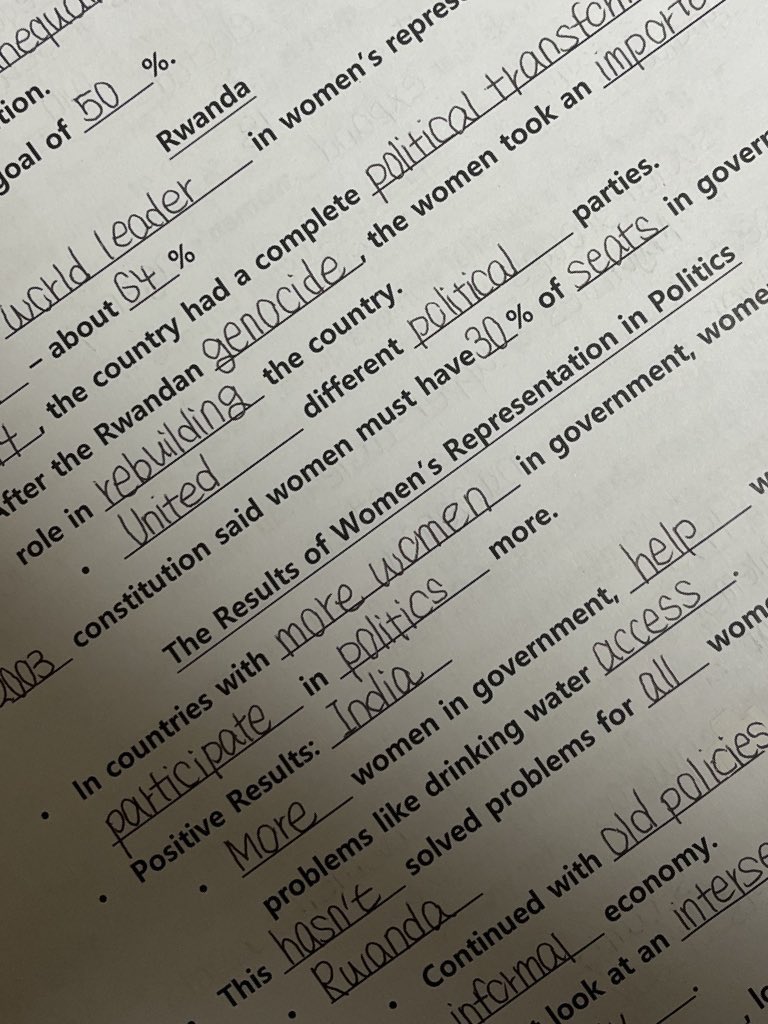 goal of 50 %.
Rwanda
world leader in women's
– about 64 %
, the country had a complete political
After the Rwandan genocide, the women took an
role in rebuilding the country.
• United different political parties.
2003 constitution said women must have 30% of seats in
The Results of Women's Representation in Politics
• In countries with more women in government,
participate in politics more.
• Positive Results: India
• More women in government, help
problems like drinking water access.
This hasn't solved problems for all
• Rwanda
• Continued with old policies
informal economy.
look at an